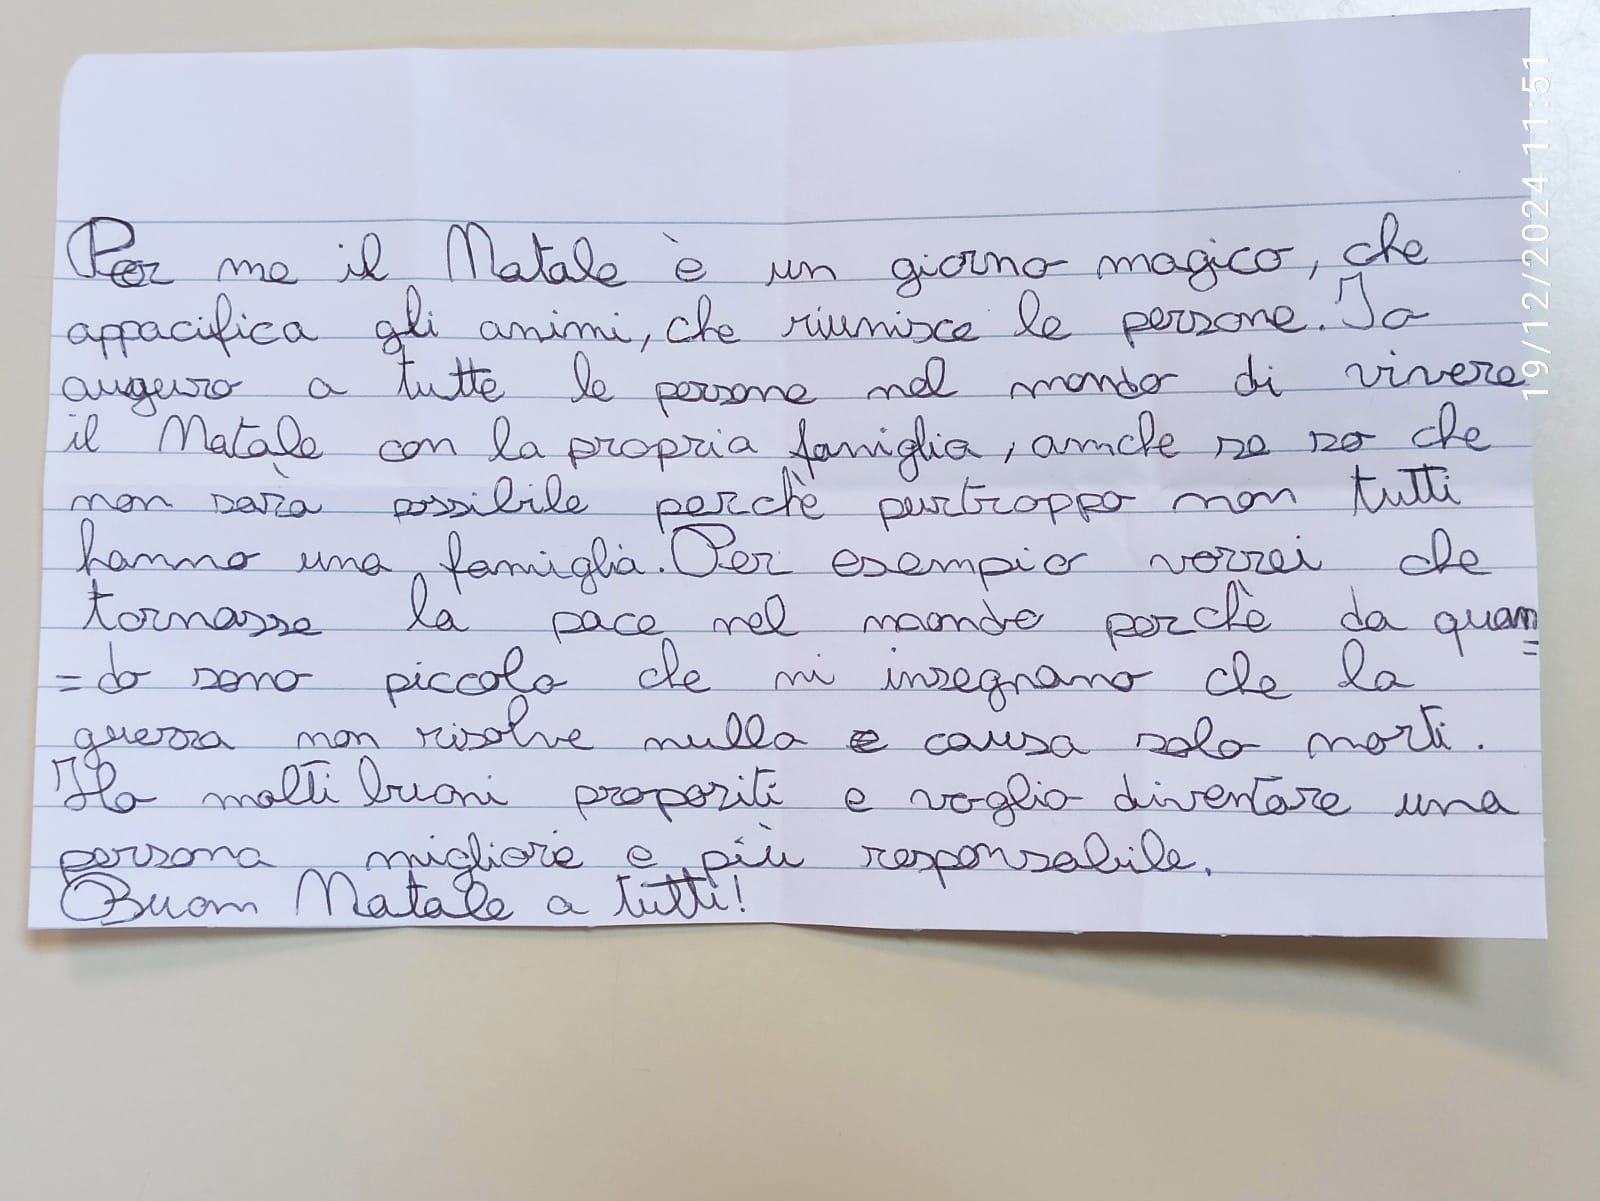 Per me il Natale è un giorno magico, che
appacifica gli animi, che riunisce le persone. Io
auguro a tutte le persone nel mondo di vivere
il Natale con la propria famiglia, anche se so che
non sarà possibile perchè purtroppo non tutti
hanno una famiglia. Per esempio vorrei che
tornasse la pace nel mondo perchè da quan
=do sono piccolo che mi insegnano che la
guerra non risolve nulla e causa solo morti.
Ho molti buoni propositi e voglio diventare una
persona migliore e più responsabile.
Buon Natale a tutti!
19/12/2024 11:51